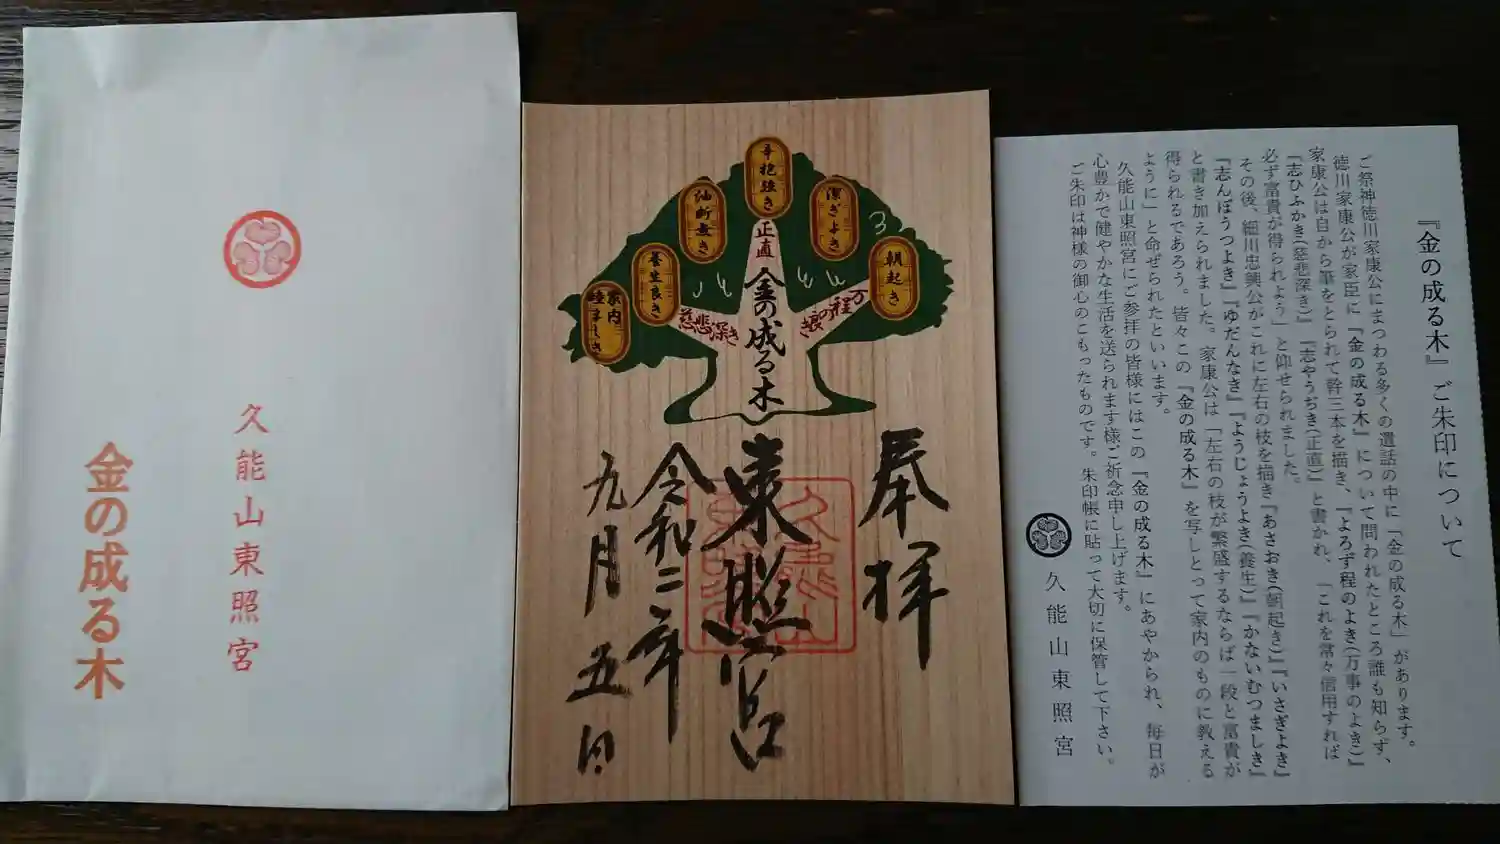 久能山東照宮
金の成る木
辛抱強き
油断無き
潔ぎよき
養生良き
朝起き
家内睦ましき
正直
慈悲深き
万程の良き
金の成る木
奉拝
東照宮
令和二年
九月五日
『金の成る木』ご朱印について
ご祭神徳川家康公にまつわる多くの遺話の中に「金の成る木」があります。
徳川家康公が家臣に『金の成る木』について問われたところ誰も知らず、
家康公は自から筆をとられて幹三本を描き、『よろず程のよき(万事のよき)』
『志ひふかき(慈悲深き)』『志やうぢき(正直)』と書かれ、「これを常々信用すれば
必ず富貴が得られよう」と仰せられました。
その後、細川忠興公がこれに左右の枝を描き『あさおき(朝起き)』『いさぎよき』
『志んぼうつよき』『ゆだんなき』『ようじょうよき(養生)』『かないむつましき』
と書き加えられました。家康公は「左右の枝が繁盛するならば一段と富貴が
得られるであろう。皆々この『金の成る木』を写しとって家内のものに教える
ように」と命ぜられたといいます。
久能山東照宮にご参拝の皆様にはこの『金の成る木』にあやかられ、毎日が
心豊かで健やかな生活を送られます様ご祈念申し上げます。
ご朱印は神様の御心のこもったものです。朱印帳に貼って大切に保管して下さい。
久能山東照宮